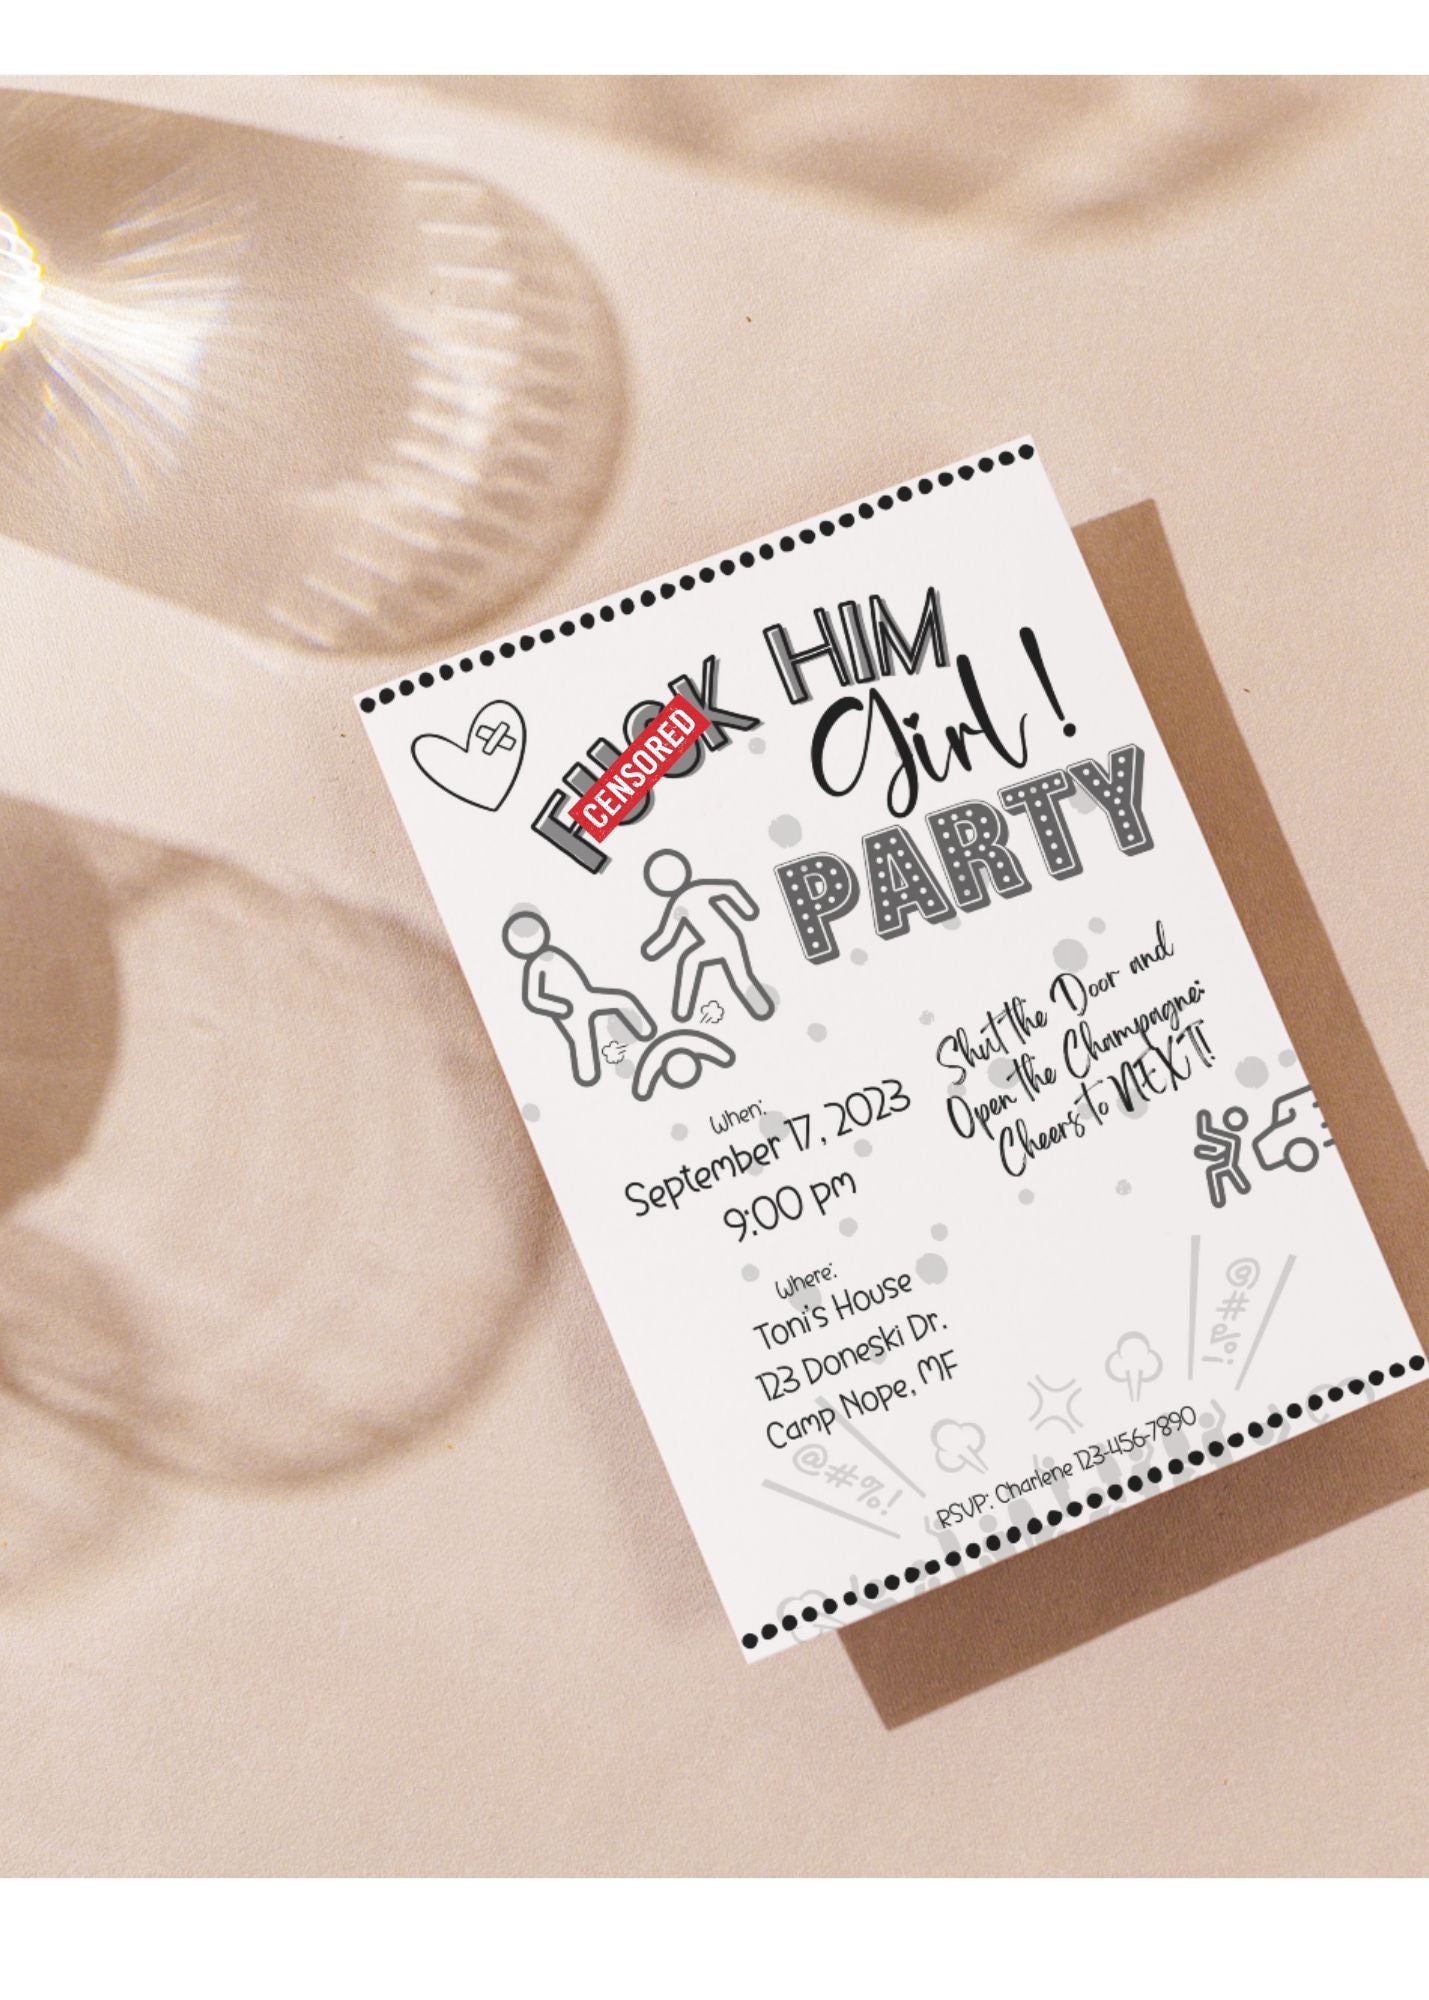 FUCK HIM
CENSORED
Girl!
PARTY
Shut the Door and
Open the Champagne:
Cheers to NEXT!
When:
September 17, 2023
9:00 pm
Where:
Toni's House
123 Doneski Dr.
Camp Nope, MF
@#%!
@#%!
RSVP: Charlene 123-456-7890